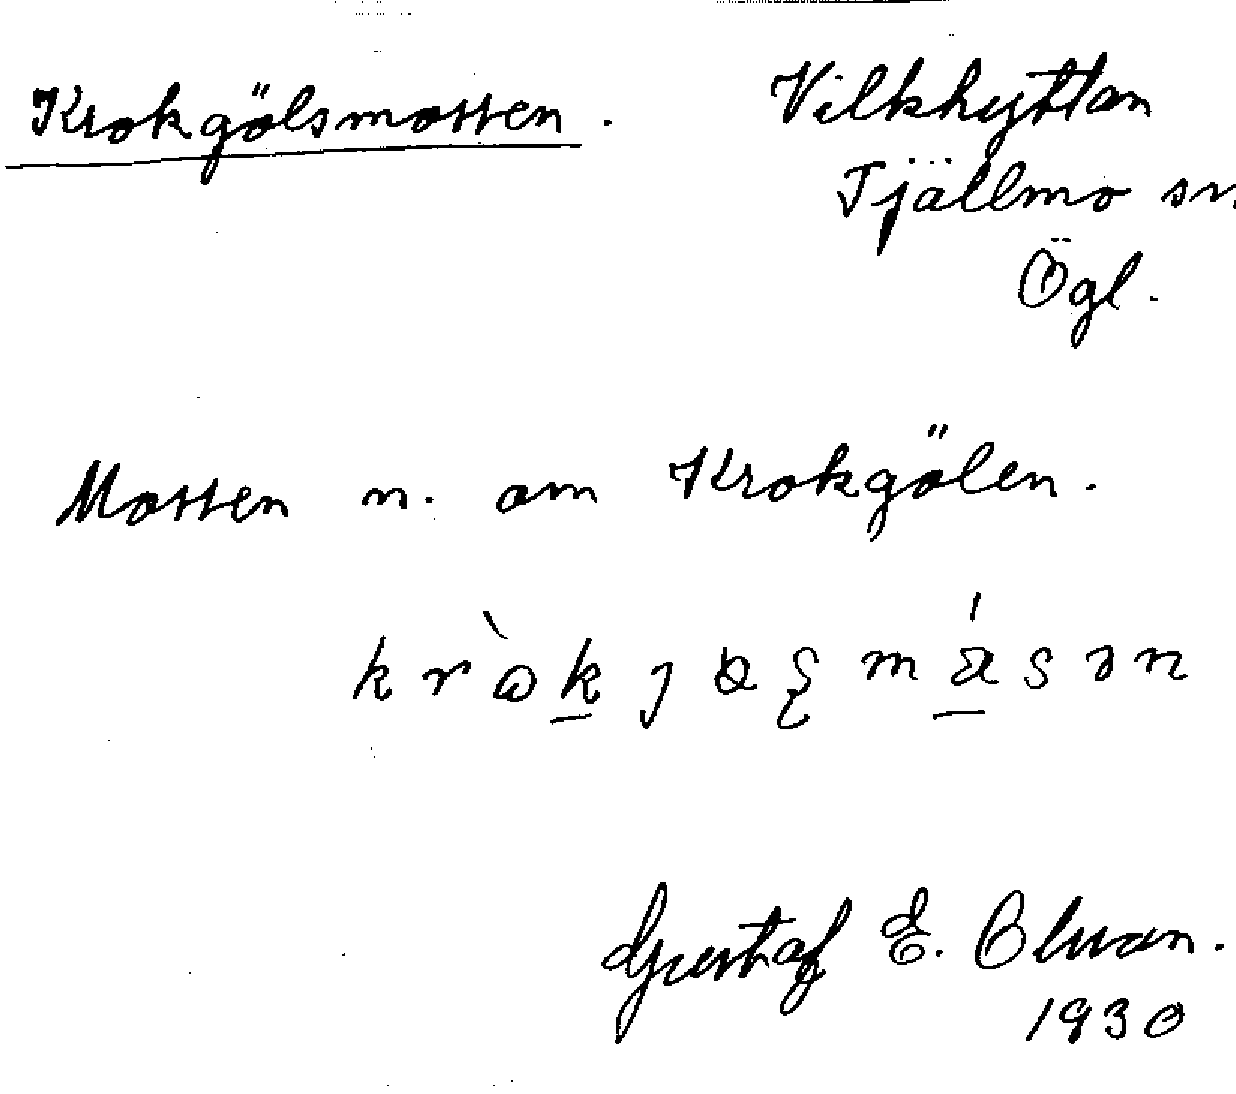 Krokgölsmossen. Vilkhyttan
Tjällmo sn
Ögl.
Mossen n. om Krokgölen.
Gustaf E.
1930